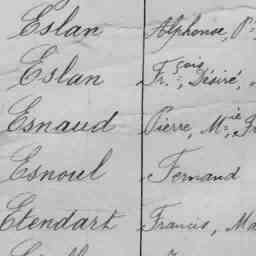 Eslan Alphonse, P
Eslan Fr.çois, Désiré,
Esnaud Pierre, M.ie, Fr
Esnoul Fernand
Etendart Francis, Ma